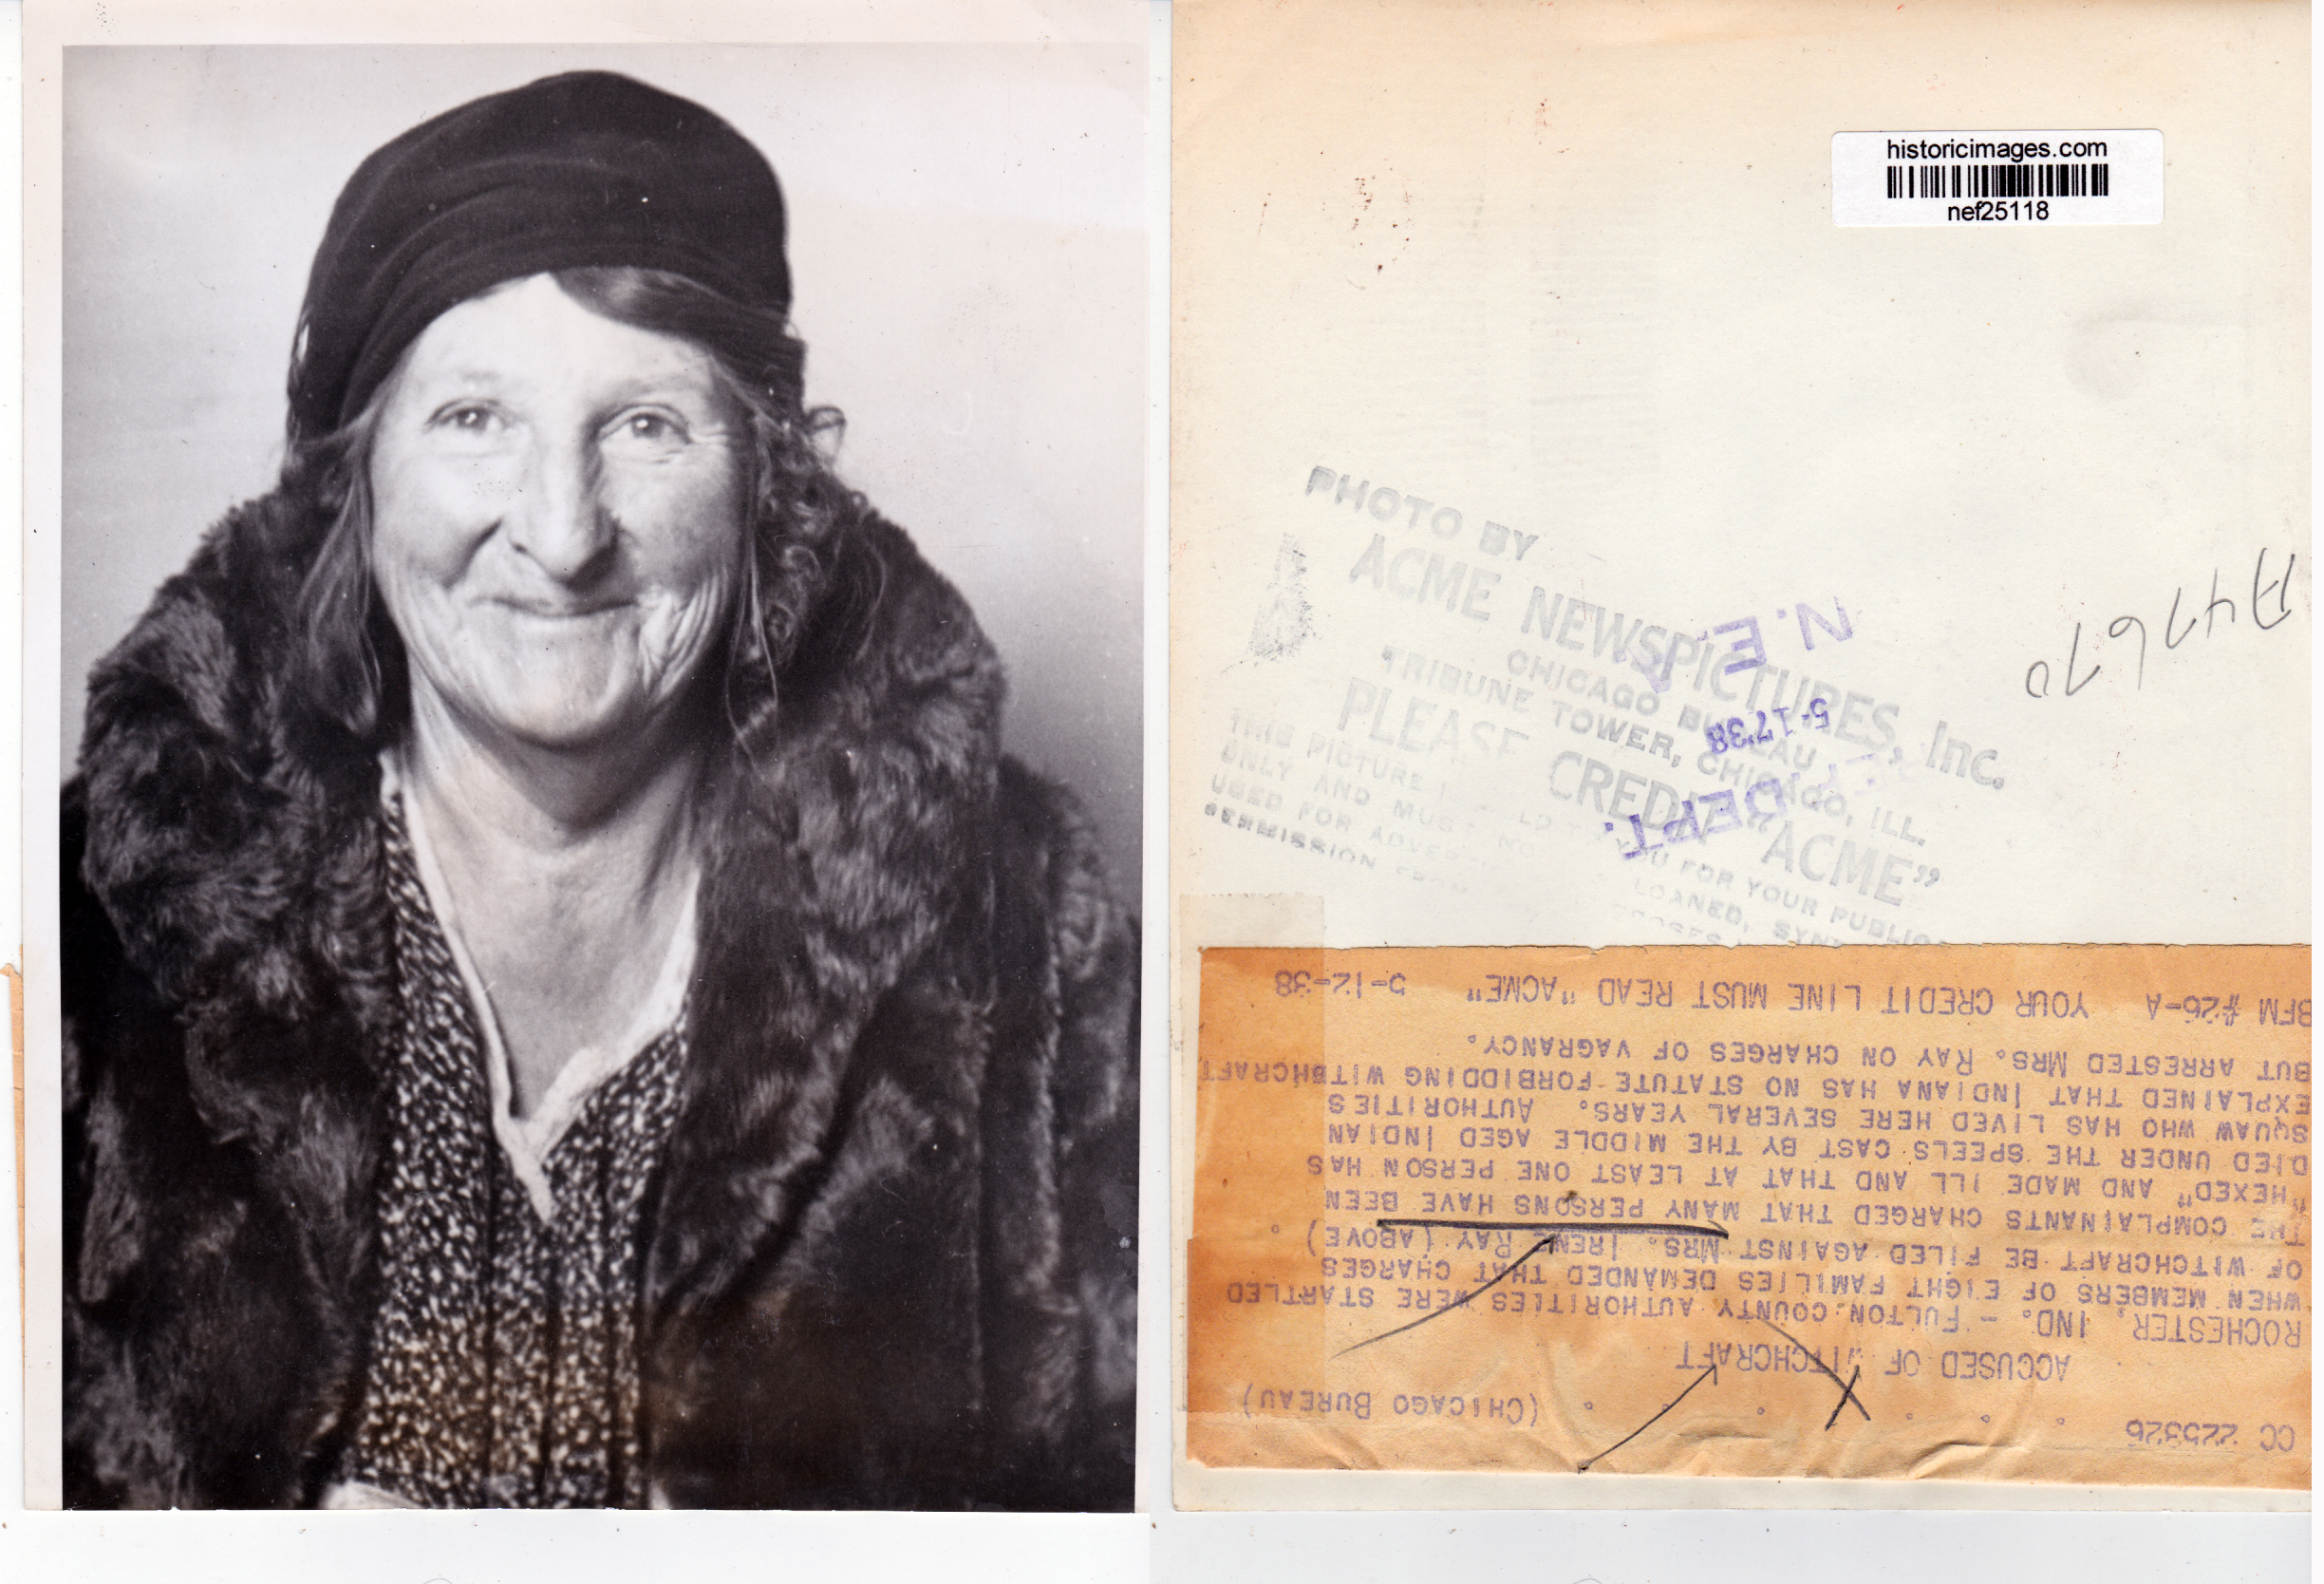 historicimages.com
nef25118
PHOTO BY
ACME NEWSPICTURES, Inc.
CHICAGO BUREAU
TRIBUNE TOWER, CHICAGO, ILL.
PLEASE CREDIT "ACME"
THIS PICTURE YOU FOR YOUR PUBLIC
ONLY AND MUST NO LOANED, SYN
USED FOR ADVER
PERMISSION
N. E.
5-1738
DEPT.
CC 225326 . . . . . . (CHICAGO BUREAU)
ACCUSED OF WITCHCRAFT
ROCHESTER, IND. - FULTON COUNTY AUTHORITIES WERE STARTLED
WHEN MEMBERS OF EIGHT FAMILIES DEMANDED THAT CHARGES
OF WITCHCRAFT BE FILED AGAINST MRS. IRENE RAY (ABOVE) .
THE COMPLAINANTS CHARGED THAT MANY PERSONS HAVE BEEN
"HEXED" AND MADE ILL AND THAT AT LEAST ONE PERSON HAS
DIED UNDER THE SPEELS CAST BY THE MIDDLE AGED INDIAN
SQUAW WHO HAS LIVED HERE SEVERAL YEARS. AUTHORITIES
EXPLAINED THAT INDIANA HAS NO STATUTE FORBIDDING WITCHCRAFT
BUT ARRESTED MRS. RAY ON CHARGES OF VAGRANCY.
BFM #26-A YOUR CREDIT LINE MUST READ "ACME" 5-12-38